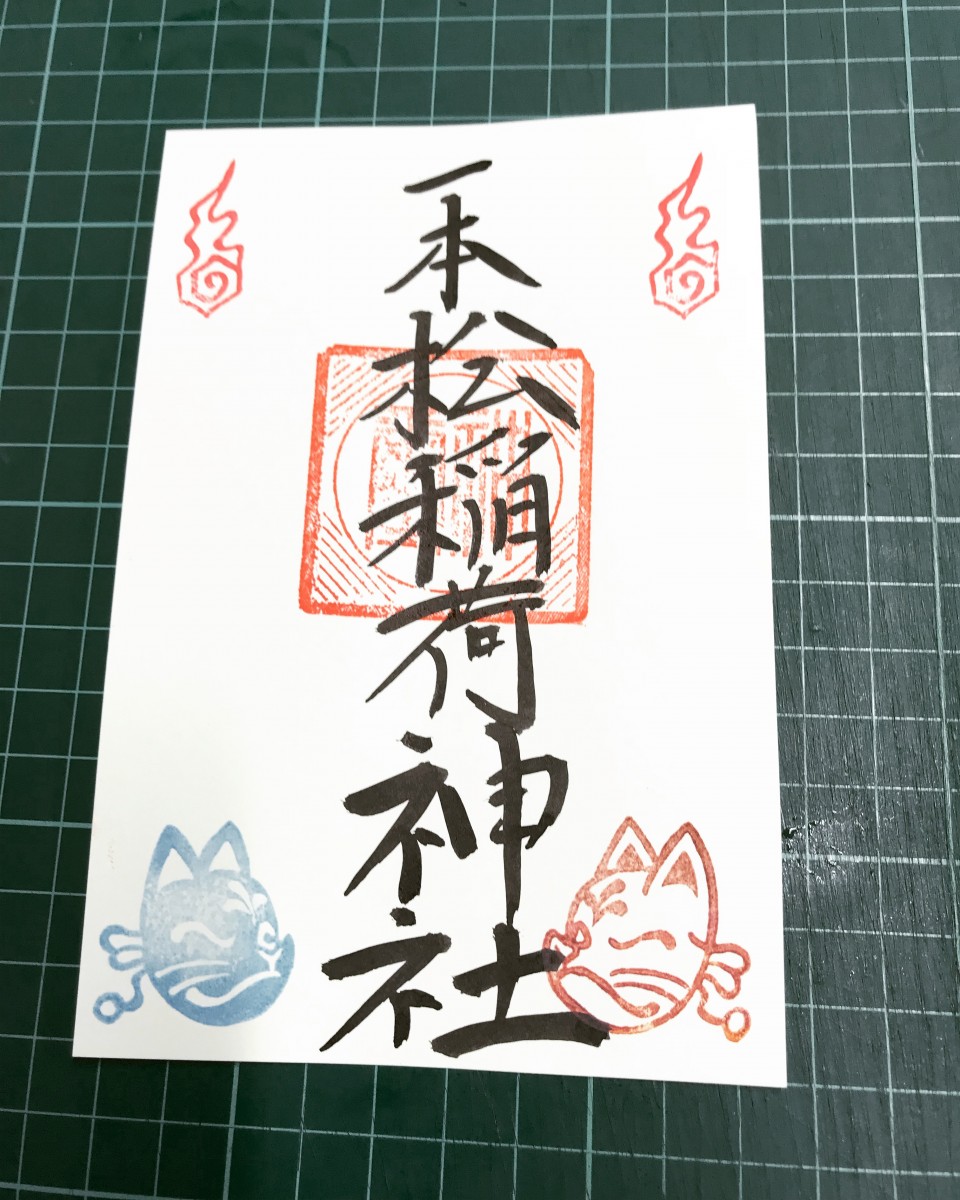 一本松稲荷神社